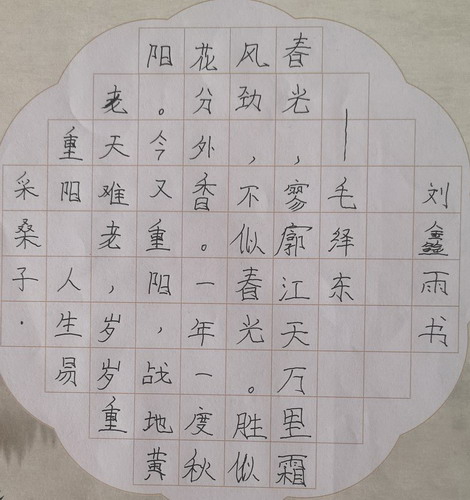 采桑子·
重阳 人生易
老天难老,岁岁重
阳。今又重阳,战地黄
花分外香。一年一度秋
风劲,不似春光。胜似
春光,雾廓江天万里霜
—毛绎东
刘鑫雨书